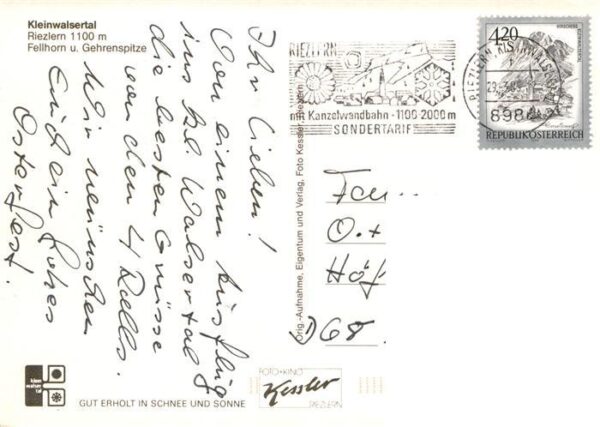 Kleinwalsertal
Riezlern 1100 m
Fellhorn u. Gehrenspitze
Ihr Lieben!
Von einem Ausflug
ins Kl. Walsertal
die besten Grüsse
von den 4 Rells.
Wir wünschen
Euch ein frohes
Osterfest.
RIEZLERN
mit Kanzelwandbahn · 1100-2000 m
SONDERTARIF
RIEZLERN
4.20
REPUBLIK ÖSTERREICH
Orig.-Aufnahme, Eigentum und Verlag, Foto Kessler, Riezlern
Fam...
D 68
klein
walser
tal
GUT ERHOLT IN SCHNEE UND SONNE
FOTO+KINO
Kessler
RIEZLERN